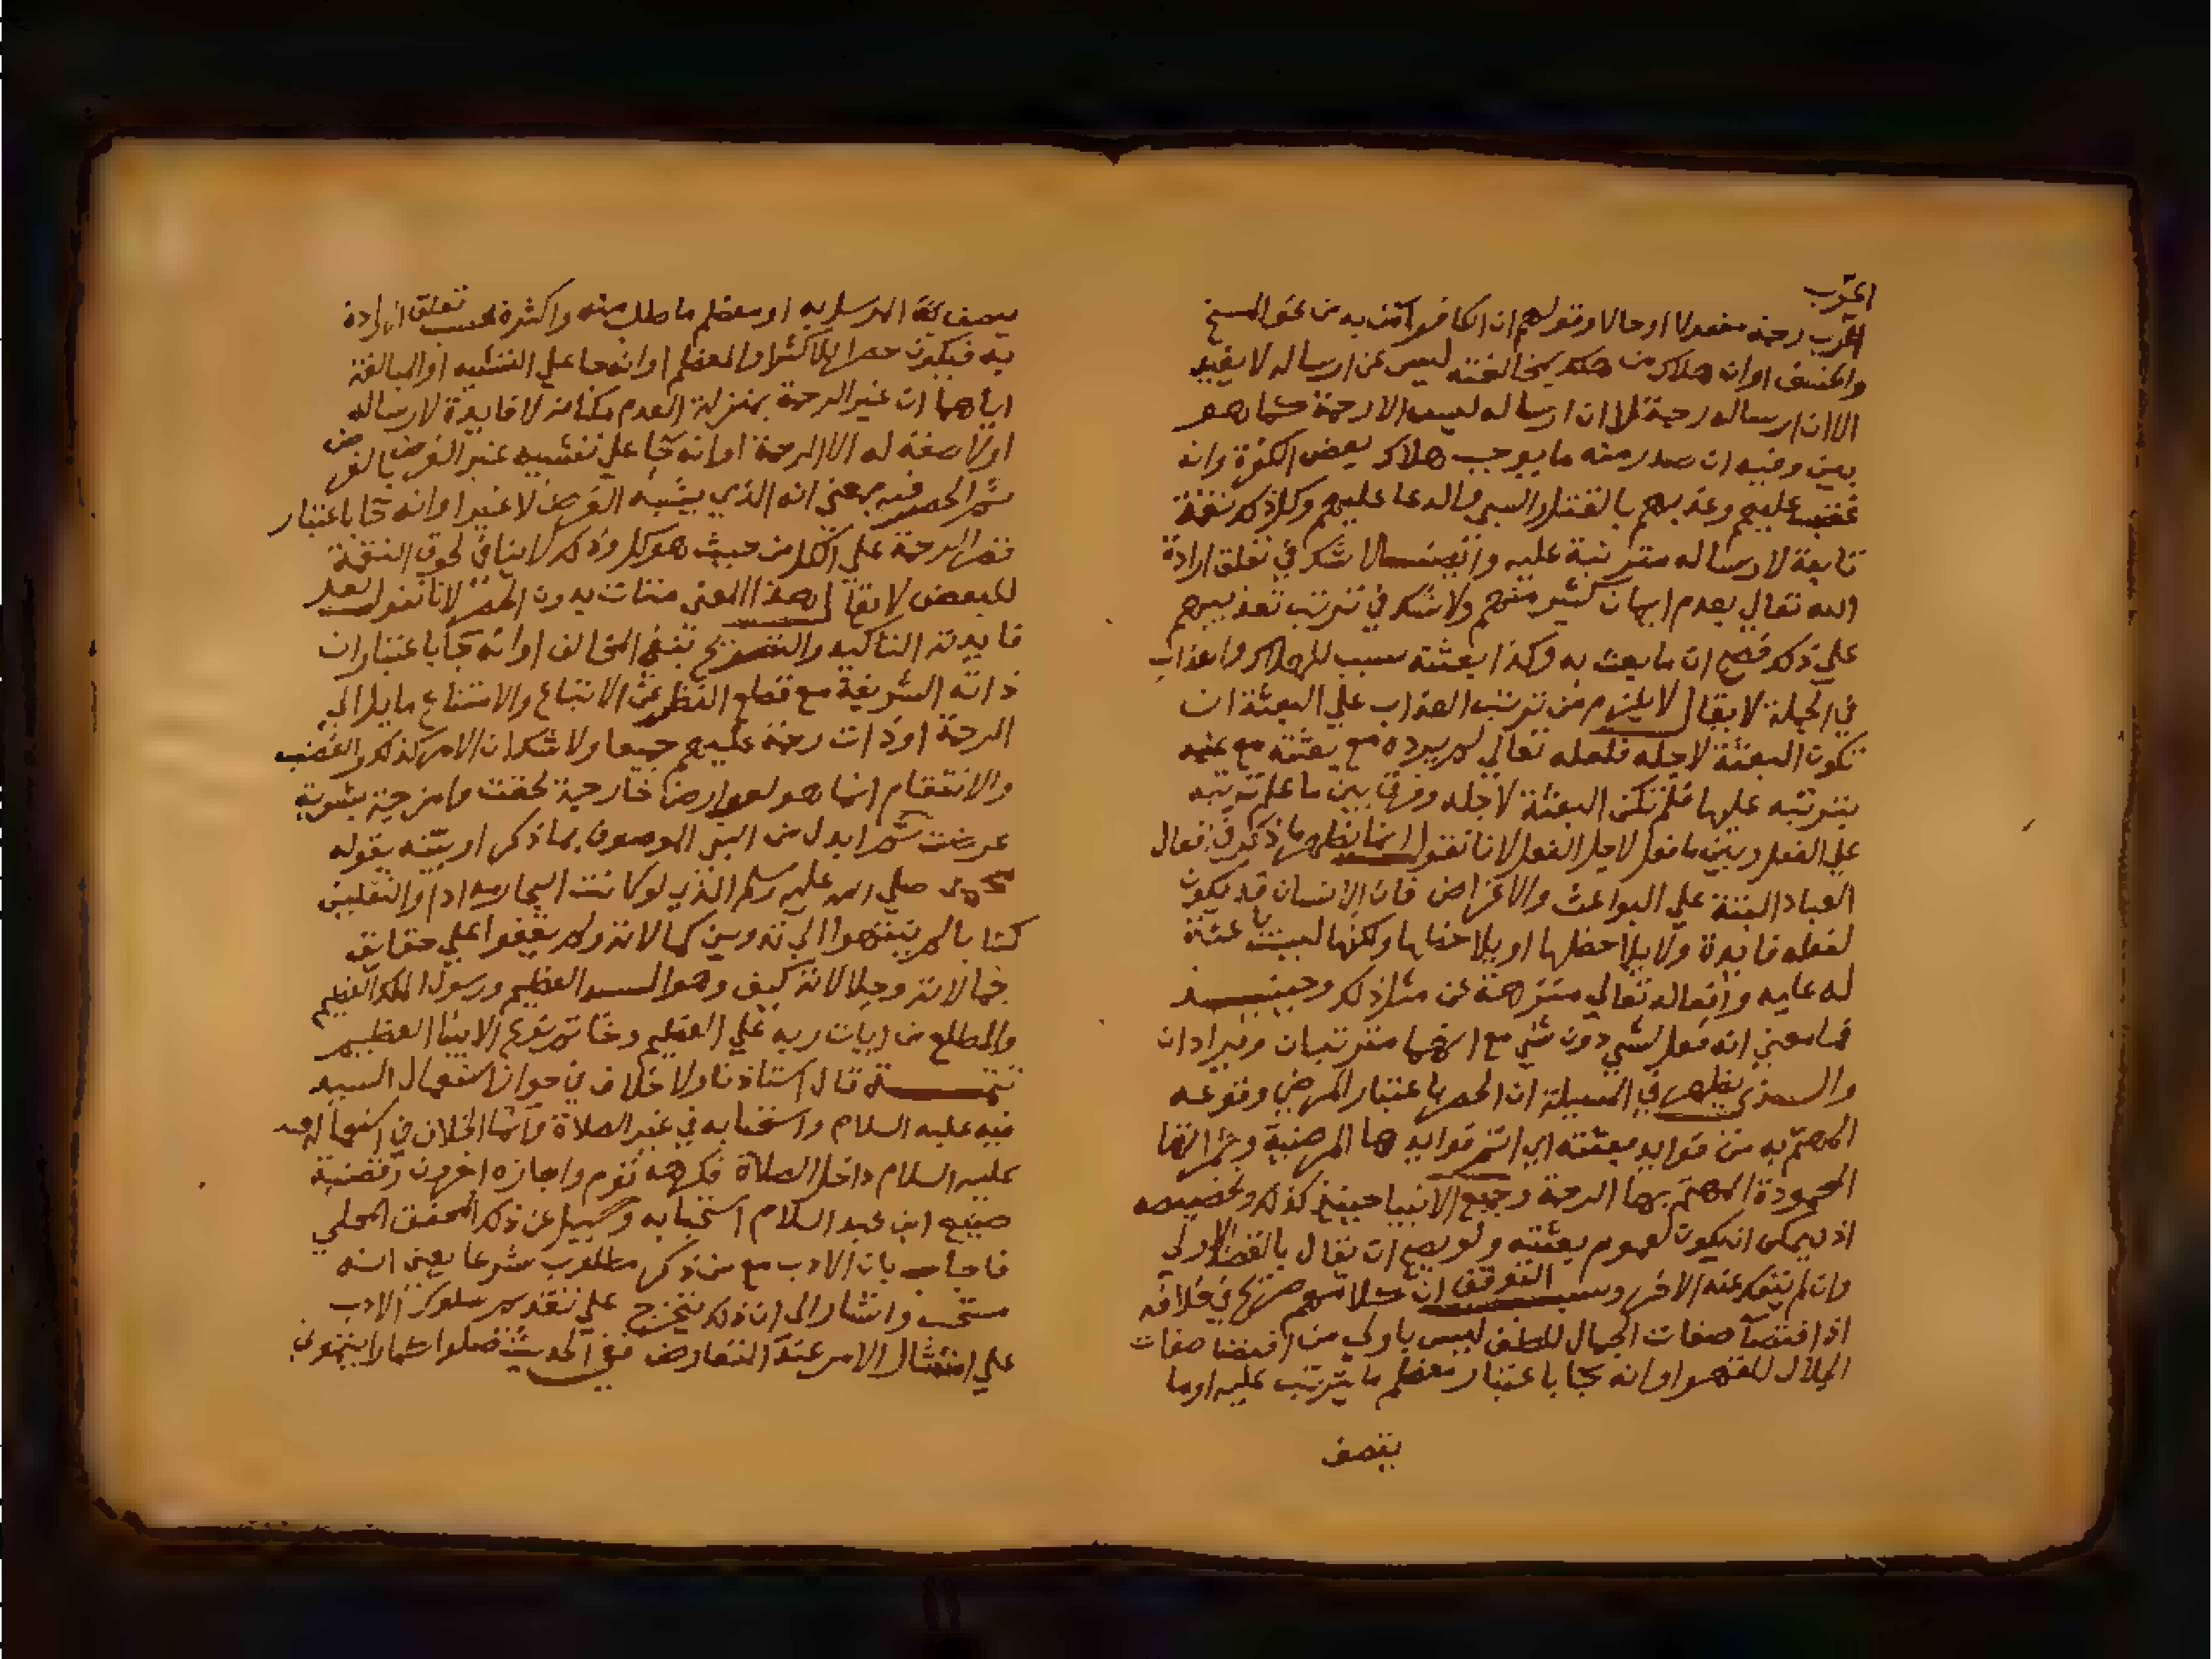 اعرب
اعرب رحمة مفعولا او حالا وقولهم ان الكافر امن به من نحو المسخ
والخسف او ان هلاك من هلك بمخالفته ليس عن ارساله لا يفيد
الا ان ارساله رحمة لا ان ارساله ليس الا رحمة كما هو
بين وفيه ان صدر منه ما يوجب هلاك بعض الكفرة وانه
غضب عليهم وعذبهم بالقتل والسبي والدعا عليهم وكل ذلك نقمة
تابعة لارساله مترتبة عليه وايضا لا شك في تعلق ارادة
الله تعالى بعدم ايمان كثير منهم ولا شك في ترتب تعذيبهم
على ذلك فصح ان ما بعث به وكذا بعثته سبب للهلاك والعذاب
في الجملة لا يقال لا يلزم من ترتب العذاب على البعثة ان
تكون البعثة لاجله فلعله تعالى لم يرده مع بعثته مع علمه
بترتبه عليها فلم تكن البعثة لاجله وفرق بين ما علم ترتبه
على الفعل وبين ما فعل لاجل الفعل لانا نقول انما يظهر ما ذكر في افعال
العباد المبنية على البواعث والاغراض فان الانسان قد يكون
لفعله فايدة ولا يلاحظها او يلاحظها ولكنها ليست باعثة
له عليه وافعاله تعالى منزهة عن مثل ذلك وحينئذ
فما معنى انه فعل لشي دون شي مع انهما مترتبان ومرادان
والذي يظهر في المسيلة ان الحصر باعتبار المرضي وقوعه
المهتم به من فوايد بعثته اي اتم فوايدها المرضية وثمراتها
المحمودة المهتم بها الرحمة وجميع الانبيا حينئذ كذلك وتخصيصه
اذن يمكن ان يكون لعموم بعثته ولو يصح ان يقال بالقصد الاولى
وان لم ينفك عنه الاخر وسبب التوقف ان كلامهم صريح في خلافه
اذ اقتضا صفات الجمال للطف ليس باولى من اقتضا صفات
الجلال للقهر او انه جا باعتبار معظم ما يترتب عليه او ما
يتصف
يتصف به المرسل به او معظم ما طلب منه واكثره بحسب تعلق الارادة
به فيكون حصرا للاكثر او المعظم او انه جا على التشبيه او المبالغة
ايا هما ان غير الرحمة بمنزلة العدم فكانه لا فايدة لارساله
او لا صفة له الا الرحمة او انه جا على تشبيه غير الغرض بالغرض
ثم الحصر فيه بمعنى انه الذي يشبه الغرض لا غير او انه جا باعتبار
قصر الرحمة على الكل من حيث هو كل وذلك لا ينافي لحوق النقمة
للبعض لا يقال هذا المعنى متات بدون الحصر لانا نقول لعل
فايدته التاكيد والتصريح بنفي المخالف او انه جا باعتبار ان
ذاته الشريفة مع قطع النظر عن الاتباع والامتناع مايل الى
الرحمة او ذات رحمة عليهم جميعا ولا شك ان الامر كذلك والغضب
والانتقام انما هو لعوارض خارجية لحقت وامزجية بشرية
عرضت ثم ابدل من النبي الموصوف بما ذكر او بينه بقوله
محمد صلى الله عليه وسلم الذي لو كانت البحار مدادا والثقلين
كتابا لم ينتهوا الى تدوين كمالاته ولم يقفوا على حقايق
جمالاته وجلالاته كيف وهو السيد العظيم ورسول الملك العظيم
والمطلع من ايات ربه على العظيم وخاتم الانبيا العظيم
تتمـة قال استاذنا ولا خلاف في جواز استعمال السيد
فيه عليه السلام واستحبابه في غير الصلاة وانما الخلاف في استعماله فيه
عليه السلام داخل الصلاة فكرهه قوم واجازه اخرون وقضية
صنيع ابن عبد السلام استحبابه وسيل عن ذلك المحقق المحلي
فاجاب بان الادب مع من ذكر مطلوب شرعا يعني انه
مستحب واشار الى ان ذلك يتخرج على تقديم سلوك الادب
على امتثال الامر عند التعارض ففي الحديث صلوا كما رايتموني